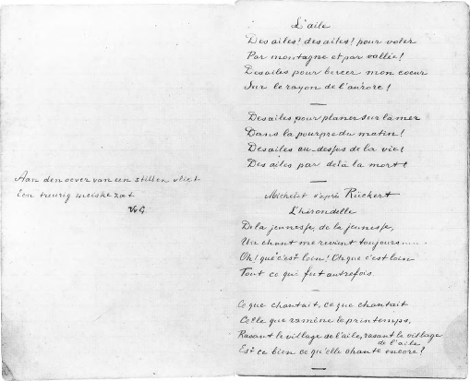 Aan den oever van een stillen vliet
Een treurig meiske zat
VvG
L'aile
Des ailes! des ailes! pour voler
Par montagne et par vallée!
Des ailes pour bercer mon coeur
Sur le rayon de l'aurore!
Des ailes pour planer sur la mer
Dans la pourpre du matin!
Des ailes au-dessus de la vie!
Des ailes par delà la mort!
Michelet d'après Rückert
L'hirondelle
De la jeunesse, de la jeunesse,
Un chant me revient toujours.....
Oh! que c'est loin! Oh que c'est loin
Tout ce qui fut autrefois.
Ce que chantait, ce que chantait
Celle que ramène le printemps,
Rasant le village de l'aile, rasant le village
de l'aile
Est ce bien ce qu'elle chante encore!